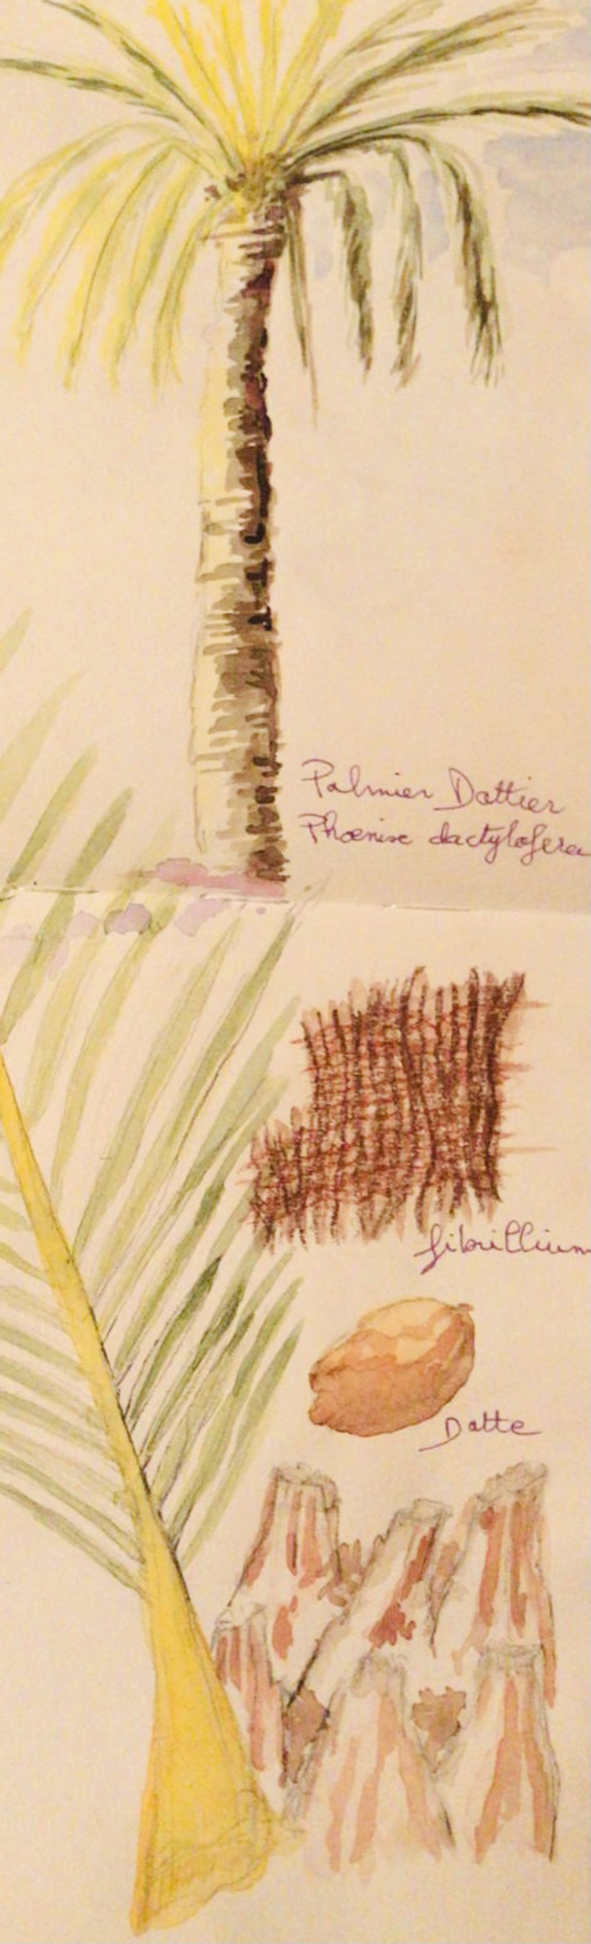 Palmier Dattier
Phœnix dactylofera
fibrillium
Datte